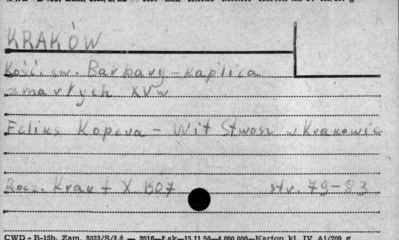 KRAKÓW
Kość. św. Barbary - kaplica
zmarłych XVw
Feliks Kopera - Wit Stwosz w Krakowie
Rocz. Krak t X 1907 str. 79-83
CWD - B-15b. Zam. 5323/S/Łż - 2016 - Żak - 15.11.56 - 4.000.000 - Karton kl. IV. A1/200 g